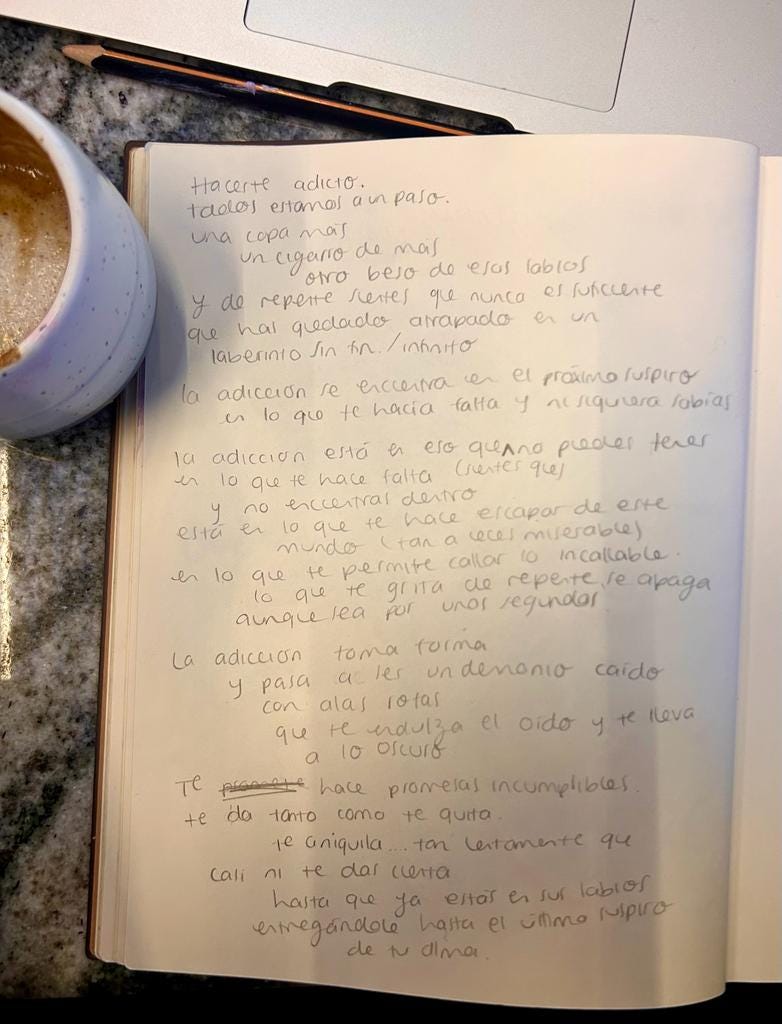 Hacerte adicto.
todos estamos a un paso.
una copa más
un cigarro de más
otro beso de esos labios
y de repente sientes que nunca es suficiente
que has quedado atrapado en un
laberinto sin fin. / infinito
la adicción se encuentra en el próximo suspiro
en lo que te hacía falta y ni siquiera sabías
la adicción está en eso que no puedes tener
en lo que te hace falta (sientes que)
y no encuentras dentro
está en lo que te hace escapar de este
mundo (tan a veces miserable)
en lo que te permite callar lo incallable.
lo que te grita de repente, se apaga
aunque sea por unos segundos
La adicción toma forma
y pasa a ser un demonio caído
con alas rotas
que te endulza el oído y te lleva
a lo oscuro
Te promete hace promesas incumplibles.
te da tanto como te quita.
te aniquila.... tan lentamente que
casi ni te das cuenta
hasta que ya estás en sus labios
entregándole hasta el último suspiro
de tu alma.